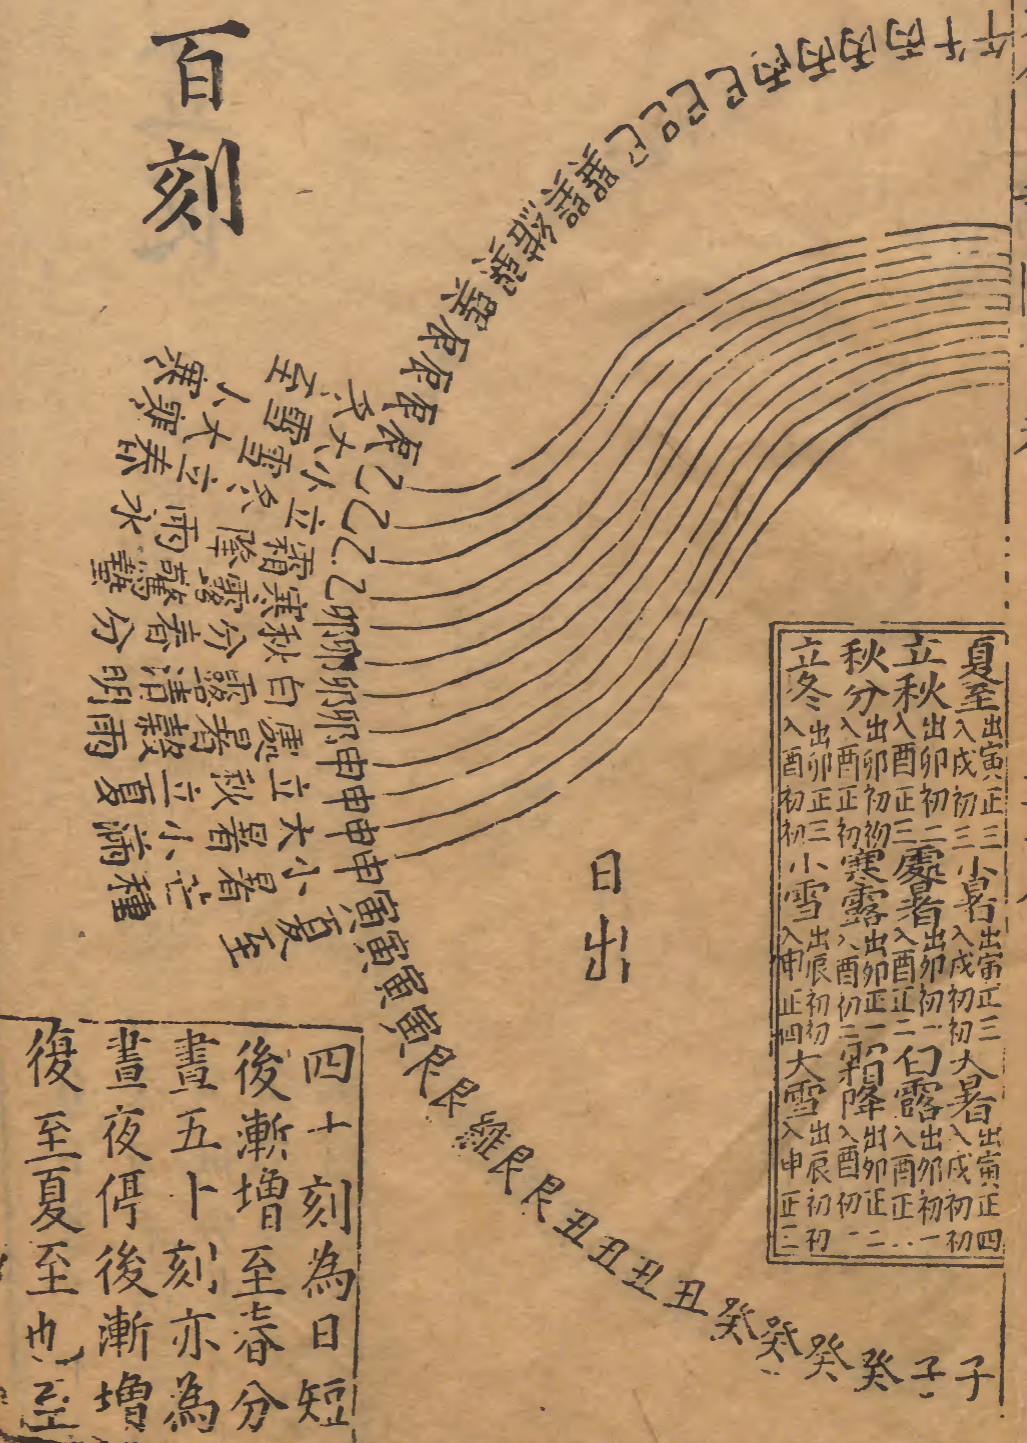 百刻
午午丙丙丙丙巳巳巳巳巽巽巽巽巽辰辰辰辰乙乙乙乙卯卯卯卯甲甲甲甲寅寅寅寅艮艮艮艮艮丑丑丑丑癸癸癸癸子子
冬至
大雪小寒
小雪大寒
立冬立春
霜降雨水
寒露驚蟄
秋分春分
白露清明
處暑穀雨
立秋立夏
大暑小滿
小暑芒種
夏至
日出
夏至出寅正三入戌初三小暑出寅正三入戌初初大暑出寅正四入戌初初
立秋出卯初二入酉正三處暑出卯初一入酉正二白露出卯初一入酉正
秋分出卯初初入酉正初寒露出卯正一入酉初二霜降出卯正二入酉初一
立冬出卯正三入酉初初小雪出辰初初入申正四大雪出辰初初入申正二
四十刻為日短
後漸增至春分
晝五十刻亦為
晝夜停後漸增
復至夏至也至